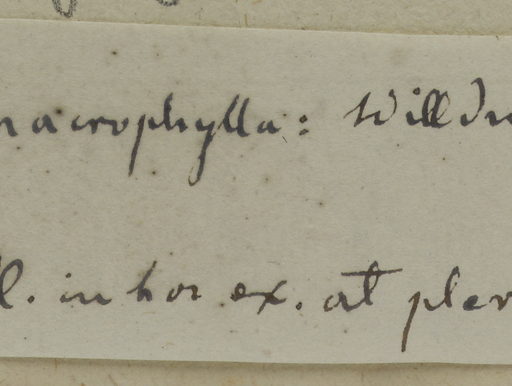 macrophylla: Willd
l. in hor ex. at pler